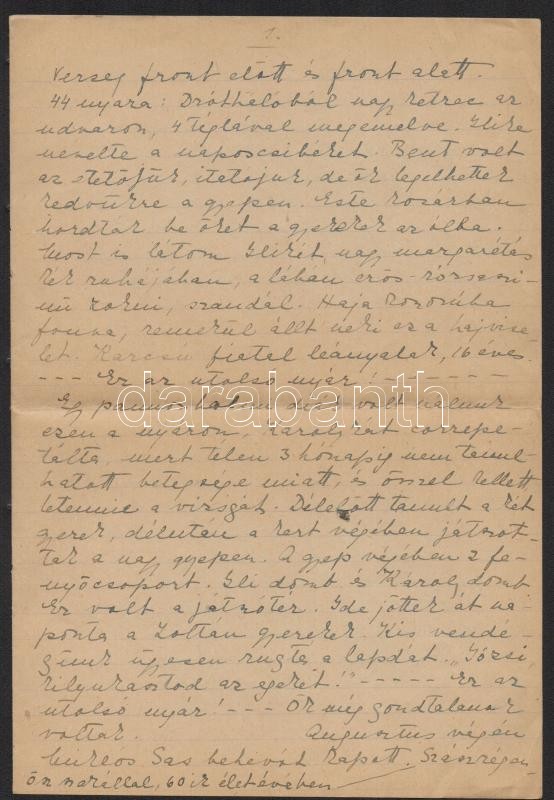 1.
Verseg front előtt és front alatt.
44 nyara: Dróthálóból nagy ketrec az
udvaron, 4 téglával megemelve. Ilike
nevelte a naposcsibéket. Bent volt
az etetőjük, itatójuk, de ők legelhettek
kedvükre a gyepen. Este kosárban
hordták be őket a gyerekek az ólba.
Most is látom Ilikét, nagy margarétás
kék ruhájában, a lábán erős rózsaszí-
nű zokni, szandál. Haja koszorúba
fonva, remekül állt neki ez a hajvise-
let. Karcsú fiatal leányalak, 16 éves.
--- Ez az utolsó nyár! --------
Egy pannonhalmi diák volt nálunk
ezen a nyáron, Károlykát korrepe-
tálta, mert télen 3 hónapig nem tanul-
hatott betegsége miatt, és ősszel kellett
letennie a vizsgát. Délelőtt tanult a két
gyerek, délután a kert végében játszot-
tak a nagy gyepen. A gyep végében 2 fe-
nyőcsoport. Ili domb és Károly domb
Ez volt a játszótér. Ide jöttek át na-
ponta a Zoltán gyerekek. Kis vendé-
günk ügyesen rugta a lapdát. „Józsi,
kilyukasztod az egeket!" ----- Ez az
utolsó nyár! --- Ők még gondtalanok
voltak. Augusztus végén
Sas behívót kapott. Szászrégen
ősz szakállal, 60 ik életévében
darabanth